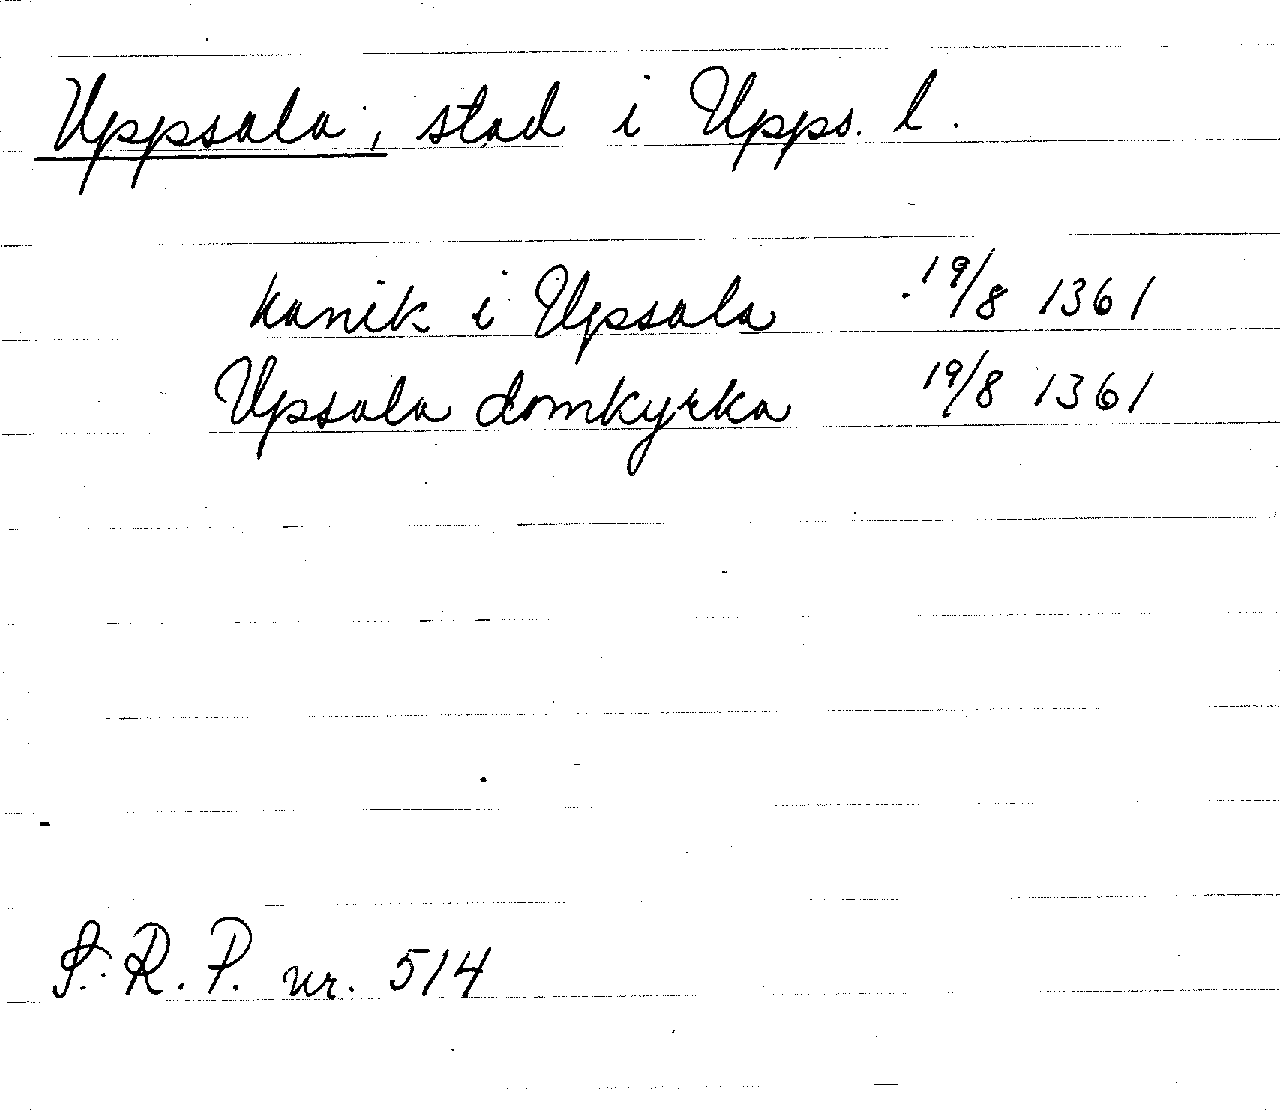 Uppsala, stad i Upps. l.
kanik i Upsala 19/8 1361
Upsala domkyrka 19/8 1361
S. R. P. nr. 514